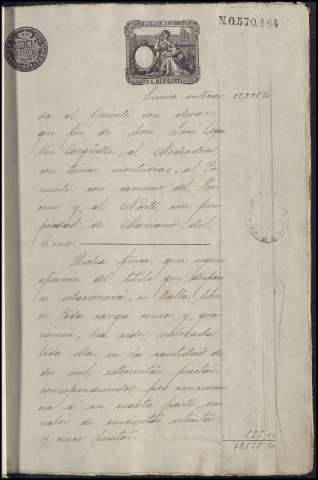 N.0.570.164
Suma anterior 12,571.50
da al Oriente con olivar
que fué de Don José
Argüelles, al Mediodia
con tierras montuosas, al Po-
niente con camino del
y al Norte con pro-
piedad de Mariano del
Dicha finca que segun
aparece del título que despues
se relacionará, se halla libre
de toda carga censo y gra-
vámen, ha sido valorada
toda ella en la cantidad de
dos mil setecientas pesetas
correspondiendo por consecuen-
cia á su cuarta parte, un
valor de seiscientas setenta
y cinco pesetas. 675,00